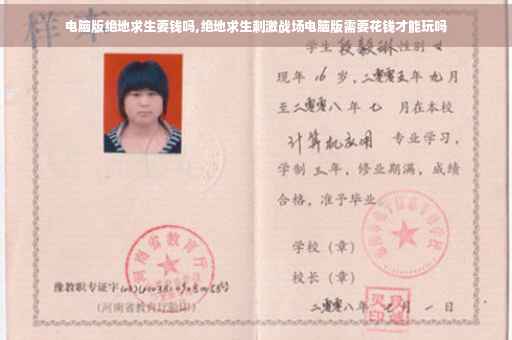 样本
电脑版绝地求生要钱吗,绝地求生刺激战场电脑版需要花钱才能玩吗
学生 段毅琳 性别 女
现年 16 岁,二零零五年 九月
至二零零八年 七 月在本校
计算机应用 专业学习,
学制 三 年,修业期满,成绩
合格,准予毕业
学校(章)
校长(章)
二零零八年 月 一 日
河南省教育厅
豫教职专证字
(河南省教育厅验印)